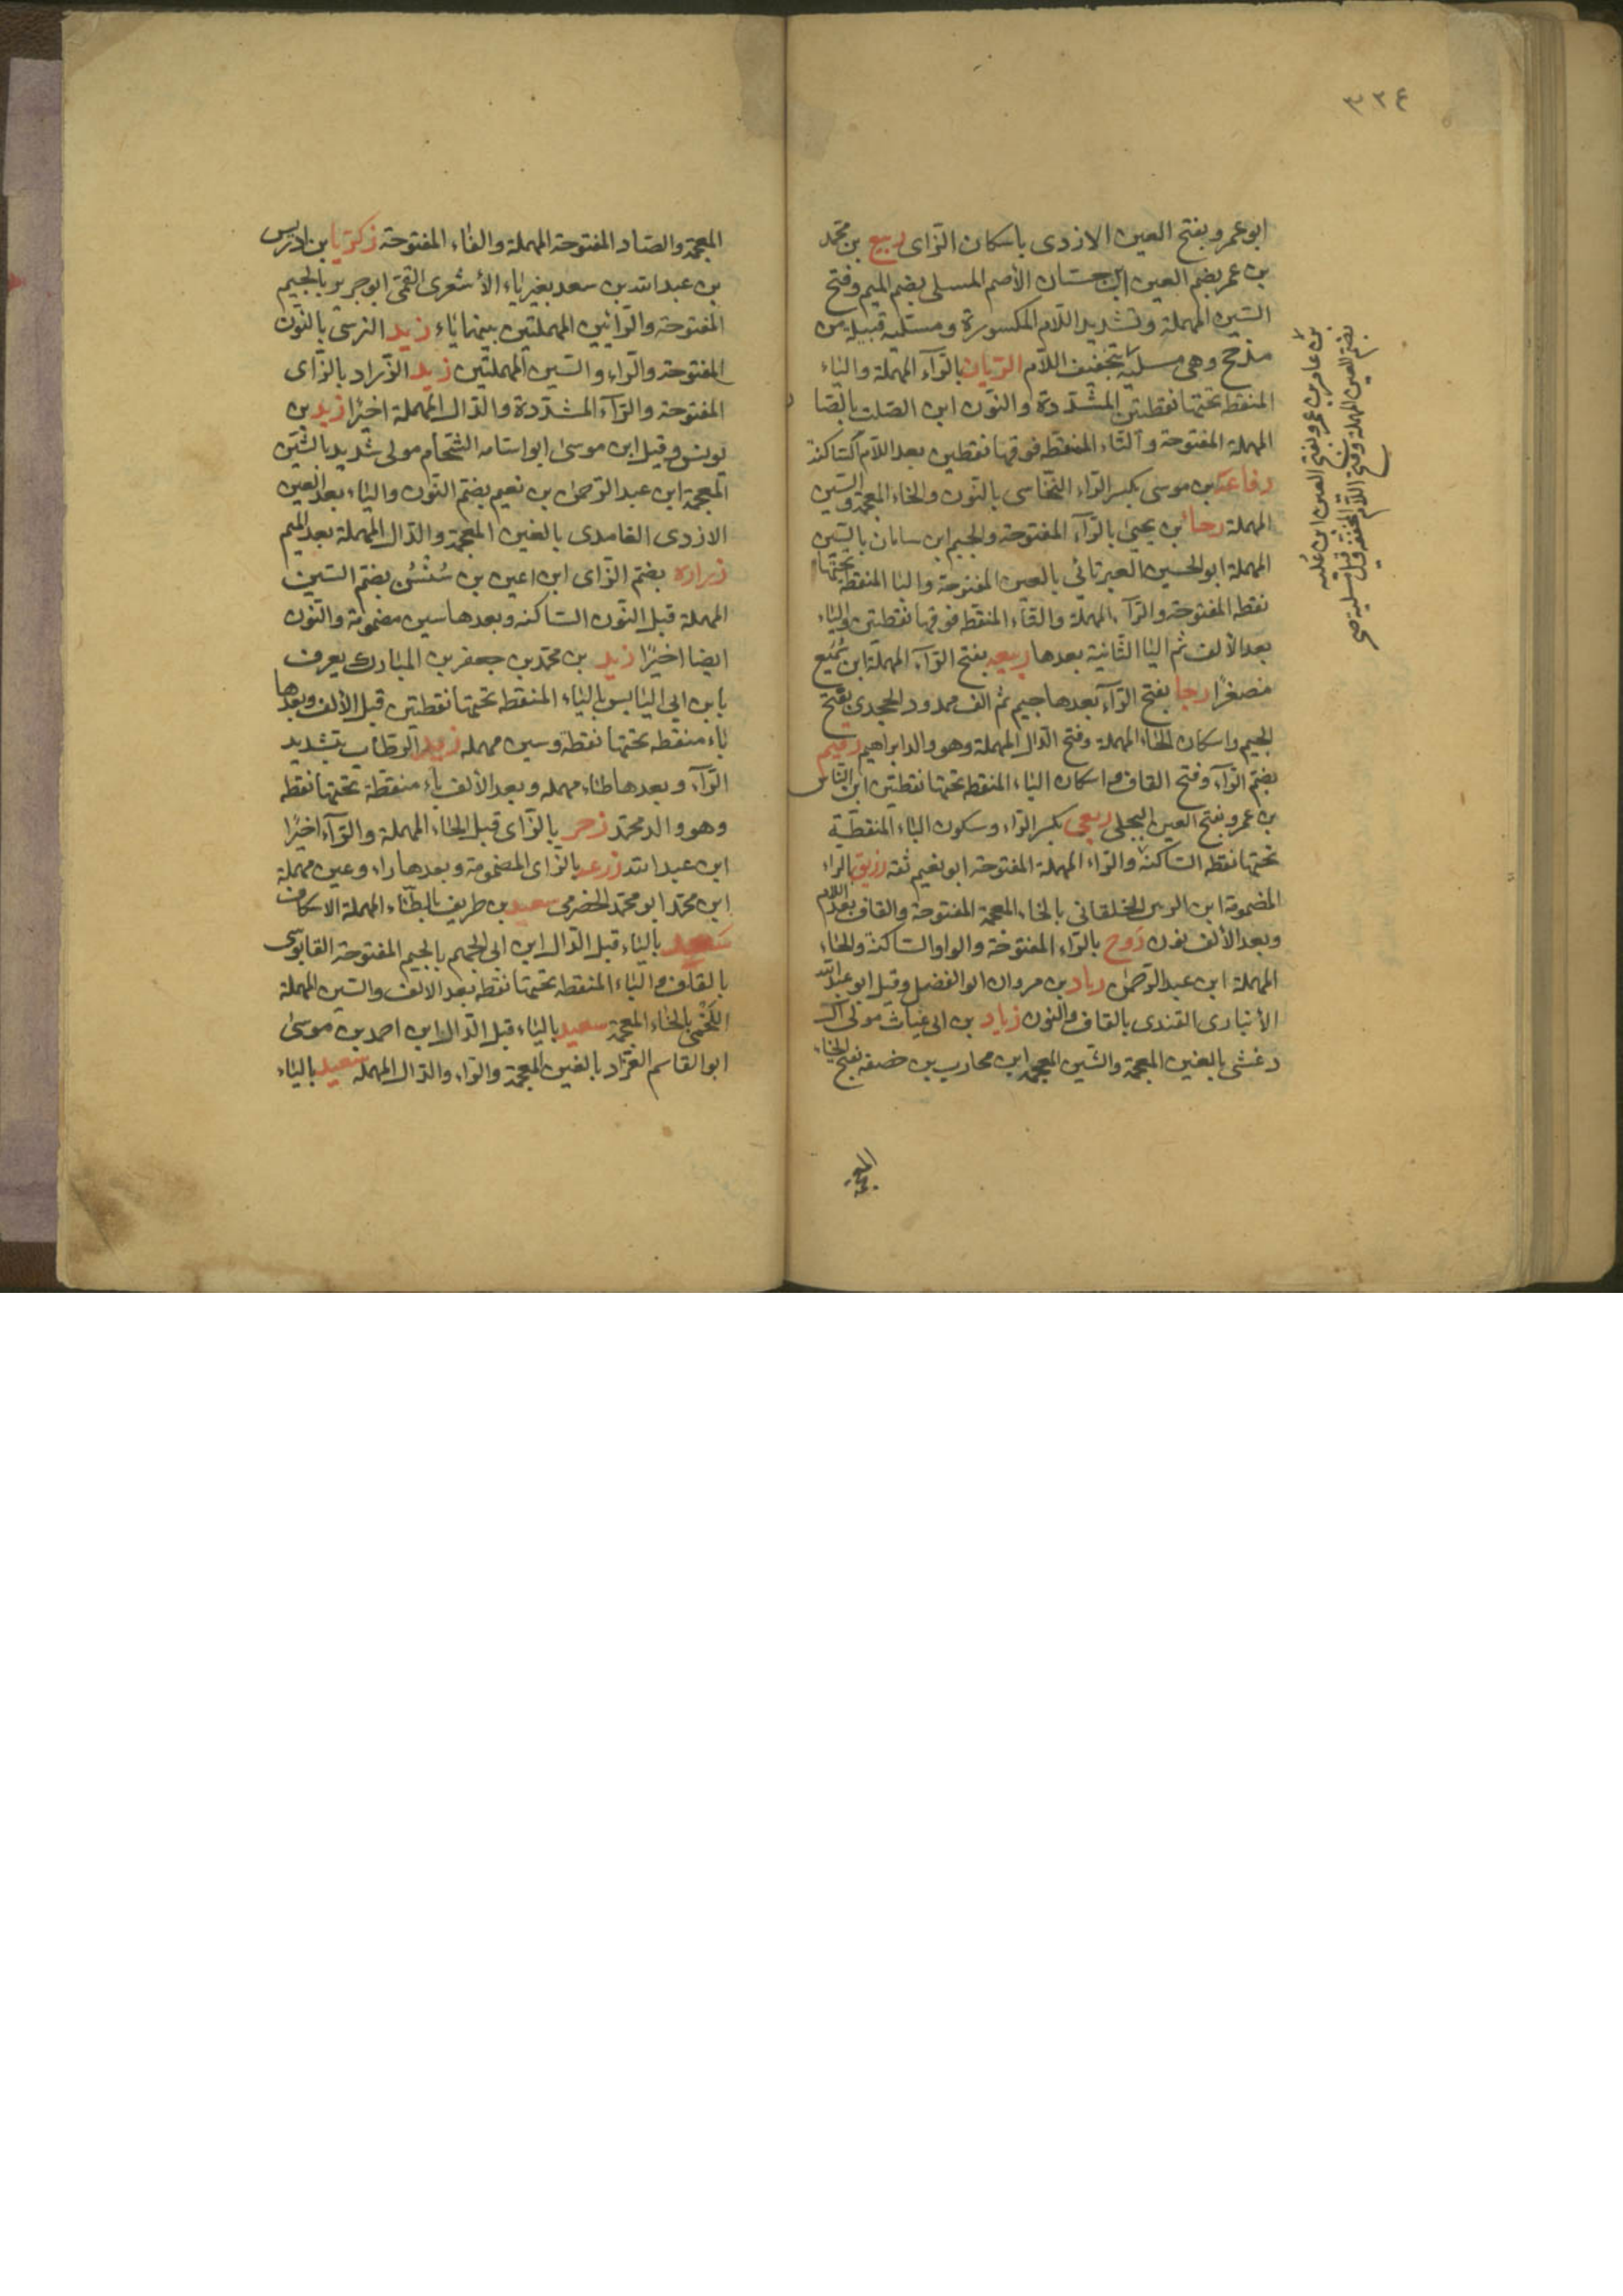 ٣٢٤
ابو عمرو بفتح العين الازدى باسكان الزاى ربيع بن محمد
بن عمر بضم العين ابن حسان الأصم المسلى بضم الميم وفتح
السين المهملة وتشديد اللام المكسورة ومسلية قبيلة من
مذحج وهى مسلية بتخفيف اللام الريان بالرآء المهملة والياء
المنقطة تحتها نقطتين المشددة والنون ابن الصلت بالصا
المهملة المفتوحة والتاء المنقطة فوقها نقطين بعد اللام الساكنة
رفاعة بن موسى بكسر الراء النخاسى بالنون والخاء المعجمة والسين
المهملة رجا بن يحيى بالرآء المفتوحة والجيم ابن سامان بالسين
المهملة ابو الحسين العبرتائى بالعين المفتوحة والبا المنقطة تحتها
نقطة المفتوحة والرآء المهملة والتاء المنقطة فوقها نقطتين والياء
بعد الألف ثم اليا الثانية بعدها ربيعه بفتح الرآء المهملة ابن سميع
مصغرا رجا بفتح الرآء بعدها جيم ثم الف ممدود الجحدرى بفتح
الجيم واسكان الحاء المهملة وفتح الدال المهملة وهو والد ابراهيم رقيم
بضم الرآء وفتح القاف واسكان الياء المنقطة تحتها نقطتين ابن الياس
بن عمرو بفتح العين البجلى ربعى بكسر الراء وسكون الباء المنقطة
تحتها نقطة الساكنة والراء المهملة المفتوحة ابو نعيم ثقة رزيق بالراء
المضمومة ابن الزبير الخلقانى بالخاء المعجمة المفتوحة والقاف بعد اللام
وبعد الألف نون روح بالراء المفتوحة والواو الساكنة والحاء
المهملة ابن عبد الرحمن زياد بن مروان ابو الفضل وقيل ابو عبد الله
الأنبارى القندى بالقاف والنون زياد بن ابى غياث مولى آل
دغشى بالغين المعجمة والشين المعجمة ابن محارب بن خصفه بفتح الخاء
بن عامر بن عمرو بفتح العين ابن عله
بضم العين المهملة وفتح اللام المخففة
المعجمة
المعجمة والصاد المفتوحة المهملة والفاء المفتوحة زكريا بن ادريس
بن عبد الله بن سعد بغير ياء الأشعرى القمى ابو جرير بالجيم
المفتوحة والرائين المهملتين بينهما ياء زيد النرسى بالنون
المفتوحة والراء والسين المهملتين زيد الزراد بالزاى
المفتوحة والرآء المشددة والدال المهملة اخيرا زيد بن
يونس وقيل ابن موسى ابو اسامه الشحام مولى شديد بالشين
المعجمة ابن عبد الرحمن بن نعيم بضم النون والياء بعد العين
الازدى الغامدى بالغين المعجمة والدال المهملة بعد الميم
زرارة بضم الزاى ابن اعين بن سنسن بضم السين
المهملة قبل النون الساكنه وبعدها سين مضمومة والنون
ايضا اخيرا زيد بن محمد بن جعفر بن المبارك يعرف
بابن ابى اليابس بالياء المنقطة تحتها نقطتين قبل الألف وبعدها
باء منقطه تحتها نقطة وسين مهملة زيد الرطاب بتشديد
الرآء وبعدها طاء مهمله وبعد الألف باء منقطة تحتها نقطه
وهو والد محمد زحر بالزاى قبل الحاء المهملة والرآء اخيرا
ابن عبد الله زرعه بالزاى المضمومة وبعدها راء وعين مهملة
ابن محمد ابو محمد الحضرمى سعيد بن طريف بالطاء المهملة الاسكاف
سعيد بالياء قبل الدال ابن ابى الجهم بالجيم المفتوحة القابوسى
بالقاف والباء المنقطه تحتها نقطه بعد الالف والسين المهملة
اللخمى بالخاء المعجمة سعيد بالياء قبل الدال ابن احمد بن موسى
ابو القاسم الغراد بالغين المعجمة والراء والدال المهمله سعيد بالياء